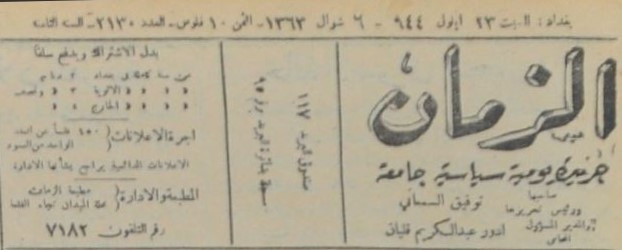 بغداد: السبت ٢٣ ايلول ٩٤٤ - ٦ شوال ١٣٦٣ - الثمن ١٠ فلوس - العدد ٢١٣٠ - السنة الثامنة
الزمان
جريدة يومية سياسية جامعة
صاحبها
ورئيس تحريرها
توفيق السمعاني
والمدير المسؤول
المحامي
ادور عبدالكريم قليان
صندوق البريد ١١٧
مسجلة بدائرة البريد برقم ٩٥
بدل الاشتراك ويدفع سلفاً
عن سنة كاملة في بغداد ٢
الخارج
اجرة الاعلانات
١٥٠ فلساً عن انج
الواحد من العمود
الاعلانات الدائمية يراجع بشأنها الادارة
المطبعة والادارة
مطبعة الزمان
في الميدان تجاه القلعة
رقم التلفون ٧١٨٢